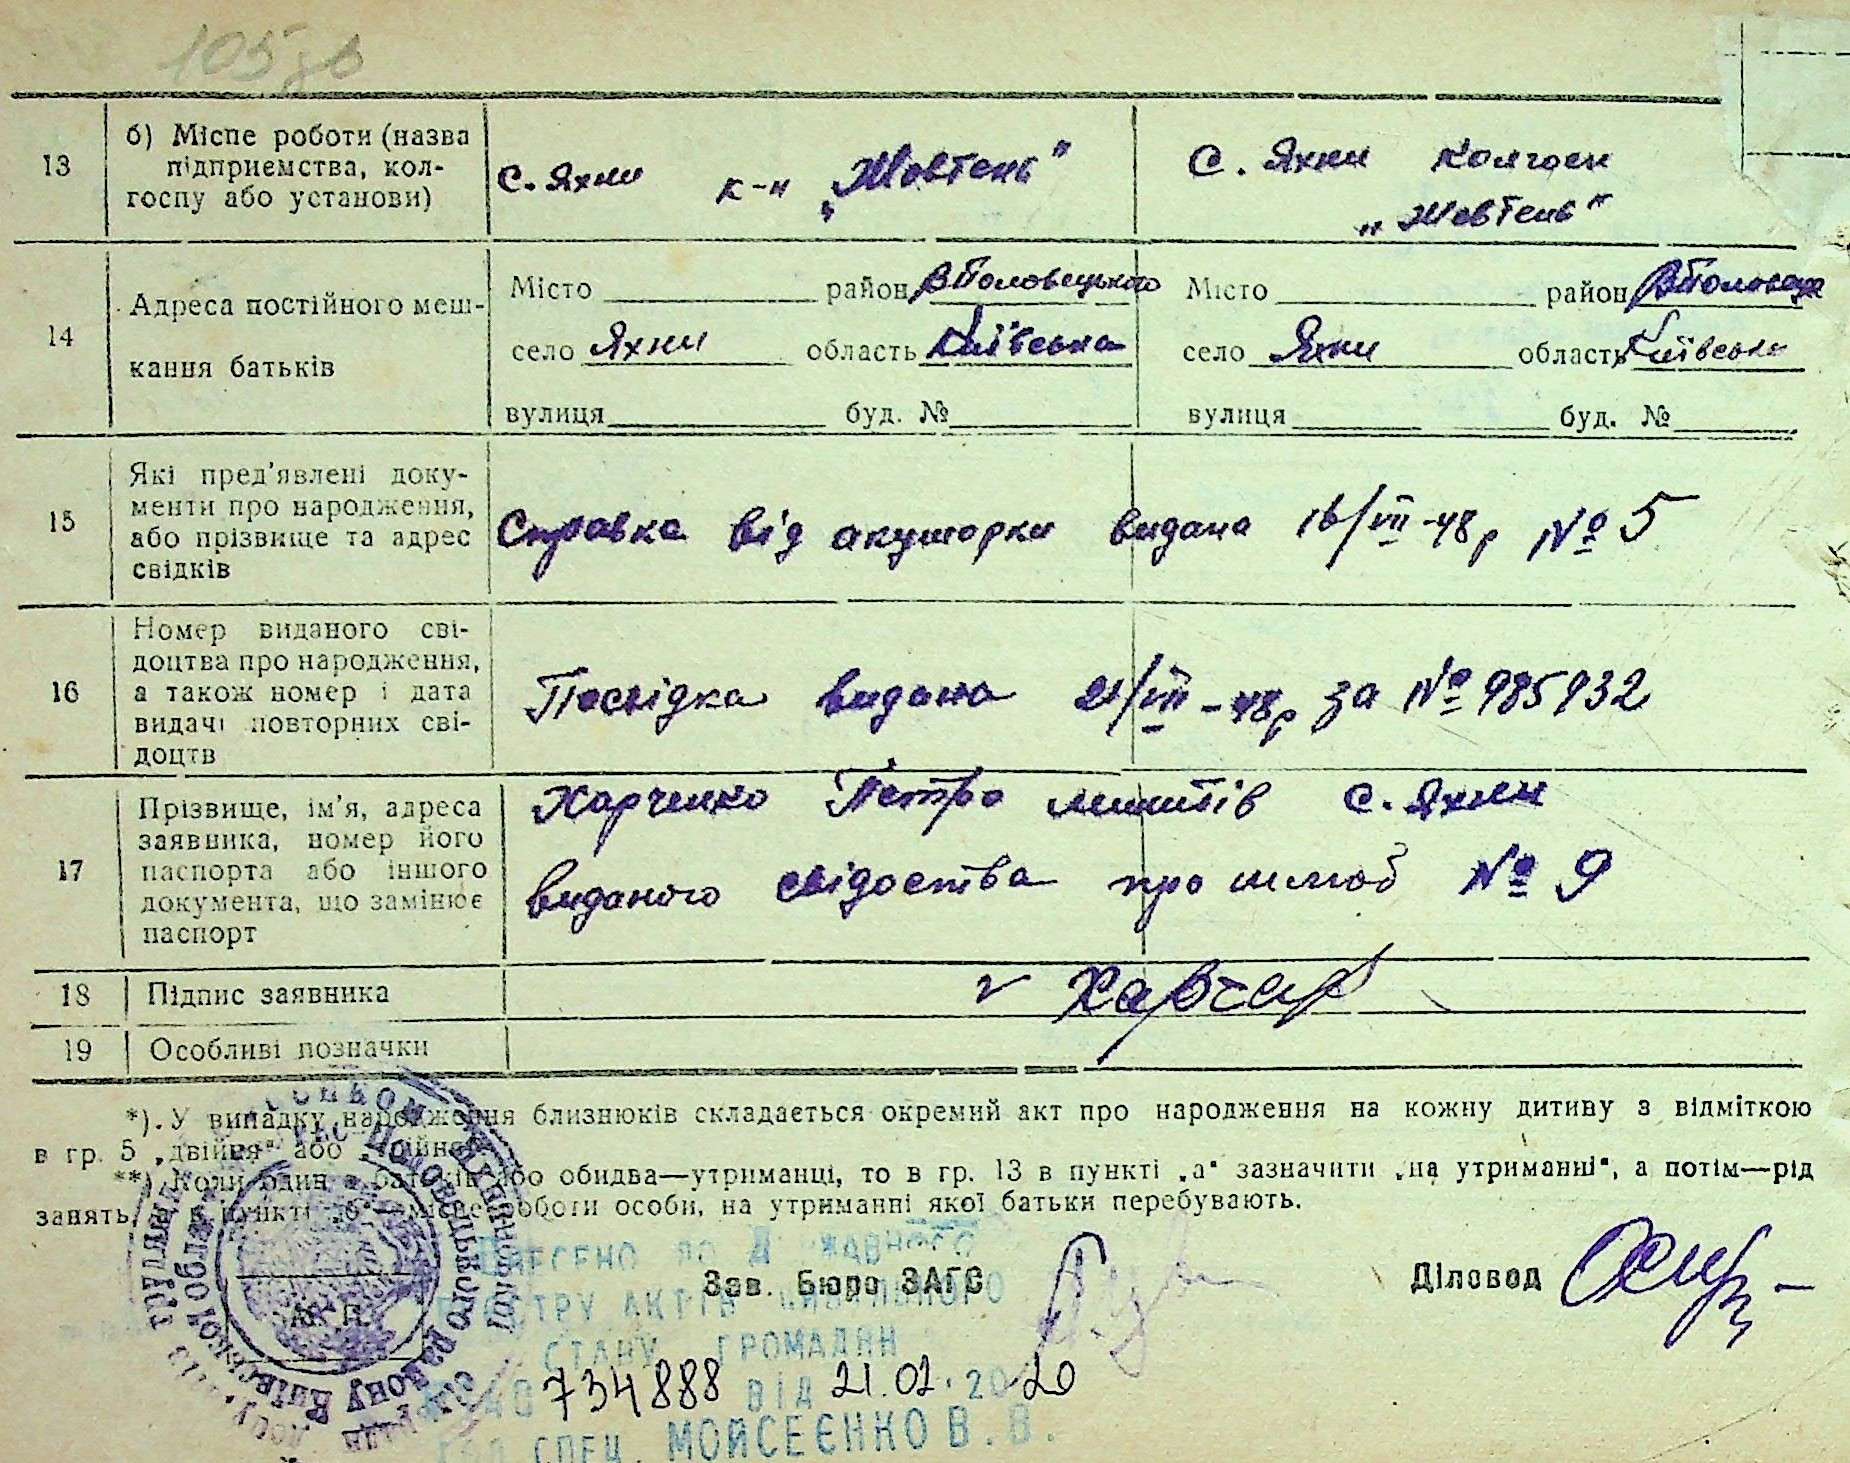 105 зв
13 б) Місце роботи (назва підприємства, колгоспу або установи) с. Яхни к-п „Жовтень" С. Яхни Колгосп
„Жовтень"
14 Адреса постійного мешкання батьків
Місто район В Половецького Місто район ВПоловецк
село Яхни область Київська село Яхни область Київська
вулиця буд. № вулиця буд. №
15 Які пред'явлені документи про народження, або прізвище та адрес свідків
Справка від акушорки видана 16/VII-48р № 5
16 Номер виданого свідоцтва про народження, а також номер і дата видачі повторних свідоцтв
Посвідка видана 21/VII-48р за № 985932
17 Прізвище, ім'я, адреса заявника, номер його паспорта або іншого документа, що замінює паспорт
Харченко Петро с. Яхни
виданого свідоства про шлюб № 9
18 Підпис заявника
19 Особливі позначки
*). У випадку народження близнюків складається окремий акт про народження на кожну дитину з відміткою
в гр. 5 „двійня" або „трійня".
**) Коли один з батьків або обидва—утриманці, то в гр. 13 в пункті „а" зазначити „на утриманні", а потім—рід
занять, в пункті „б"—місце роботи особи, на утриманні якої батьки перебувають.
Внесено до Державного
Зав. Бюро ЗАГС Діловод
реєстру актів цивільного
стану громадян
734888 від 21.02.2020
МОЙСЕЄНКО В. В.